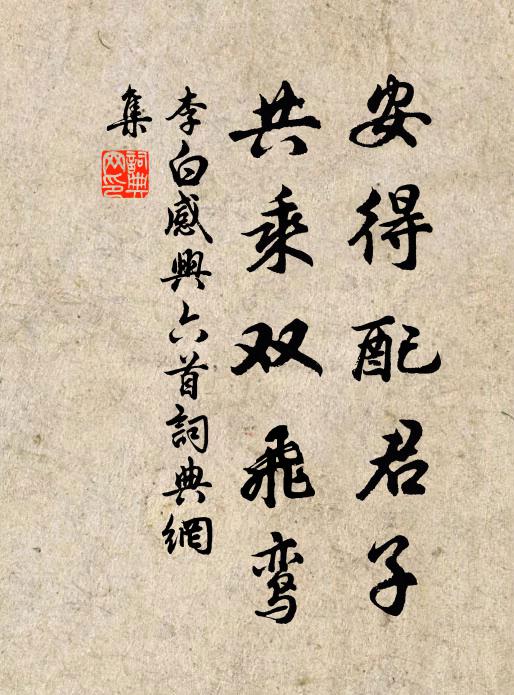 安得配君子
共乘双飞鸾
李白感興六首詞典網
集
詞典
网印